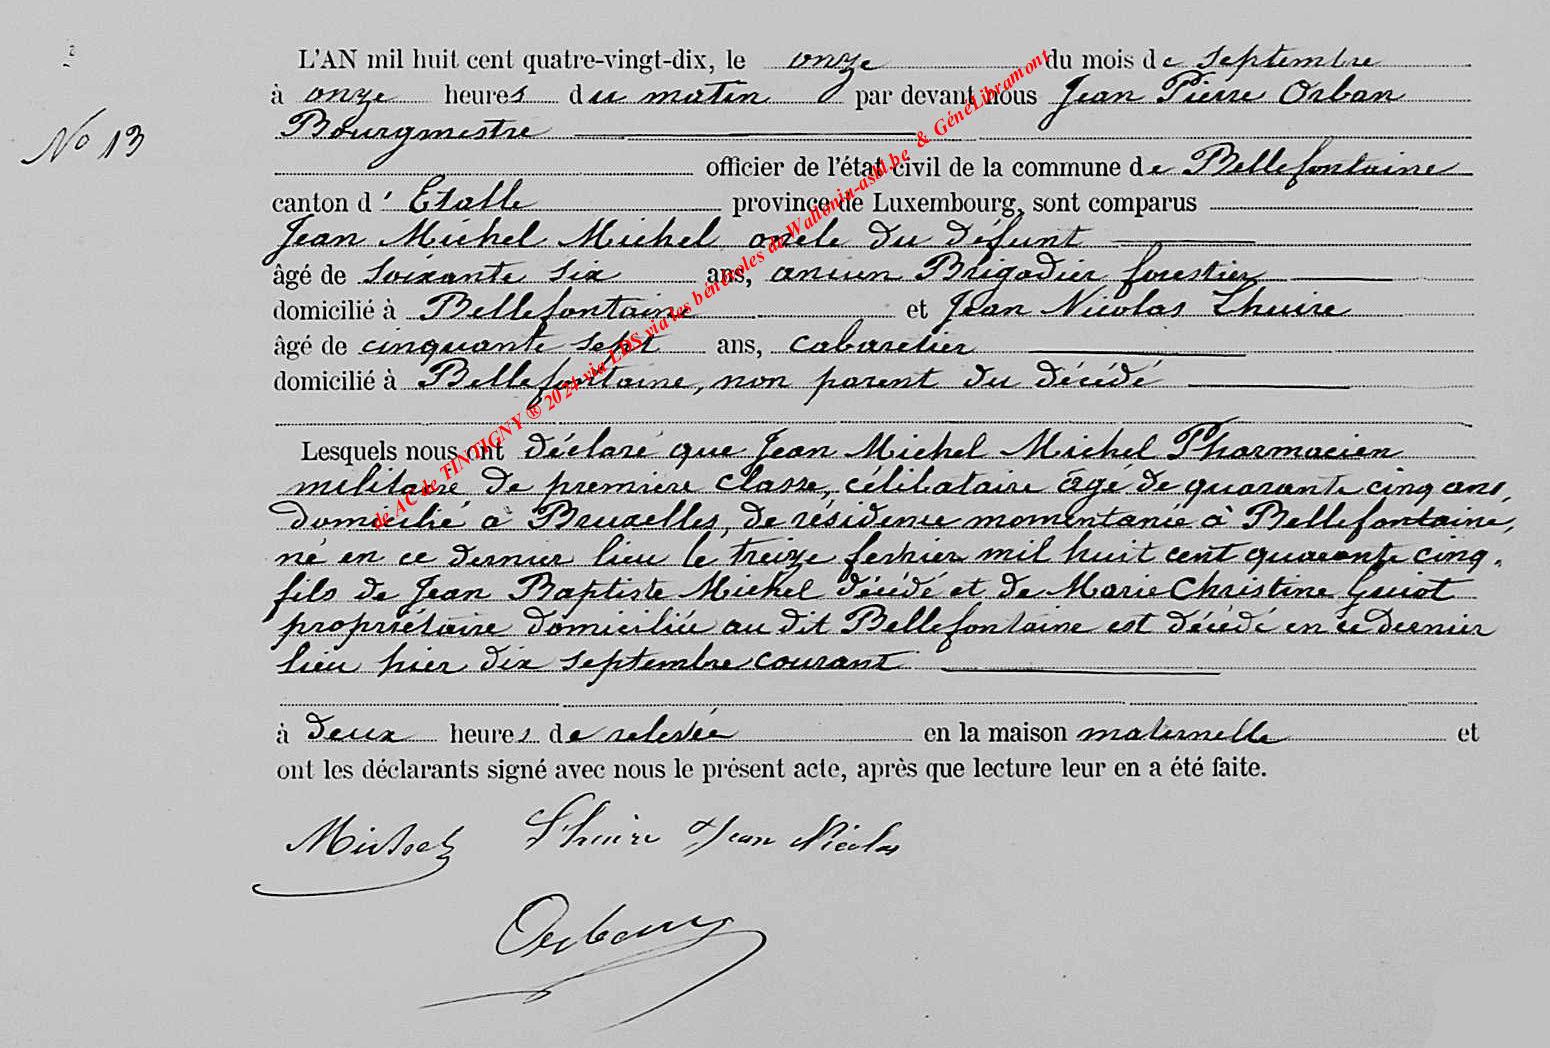 L'AN mil huit cent quatre-vingt-dix, le onze du mois de septembre
à onze heures du matin par devant nous Jean Pierre Orban
No 13
Bourgmestre
officier de l'état civil de la commune de Bellefontaine
canton d' Etalle province de Luxembourg, sont comparus
Jean Michel Michel oncle du défunt
âgé de soixante six ans, ancien Brigadier forestier
domicilié à Bellefontaine et Jean Nicolas Lhuire
âgé de cinquante sept ans, cabaretier
domicilié à Bellefontaine, non parent du décédé
Lesquels nous ont déclaré que Jean Michel Michel Pharmacien
militaire de première classe, célibataire âgé de quarante cinq ans,
domicilié à Bruxelles, de résidence momentanée à Bellefontaine,
né en ce dernier lieu le treize fevrier mil huit cent quarante cinq,
fils de Jean Baptiste Michel décédé et de Marie Christine Guiot
propriétaire domiciliée au dit Bellefontaine est décédé en ce dernier
lieu hier dix septembre courant
à deux heures de relevée en la maison maternelle et
ont les déclarants signé avec nous le présent acte, après que lecture leur en a été faite.
Michel Lhuire Jean Nicolas
Orban
de AC de TINTIGNY ® 2024 via LDS via les bénévoles de Wallonia-asbl.be & GénéLibramont